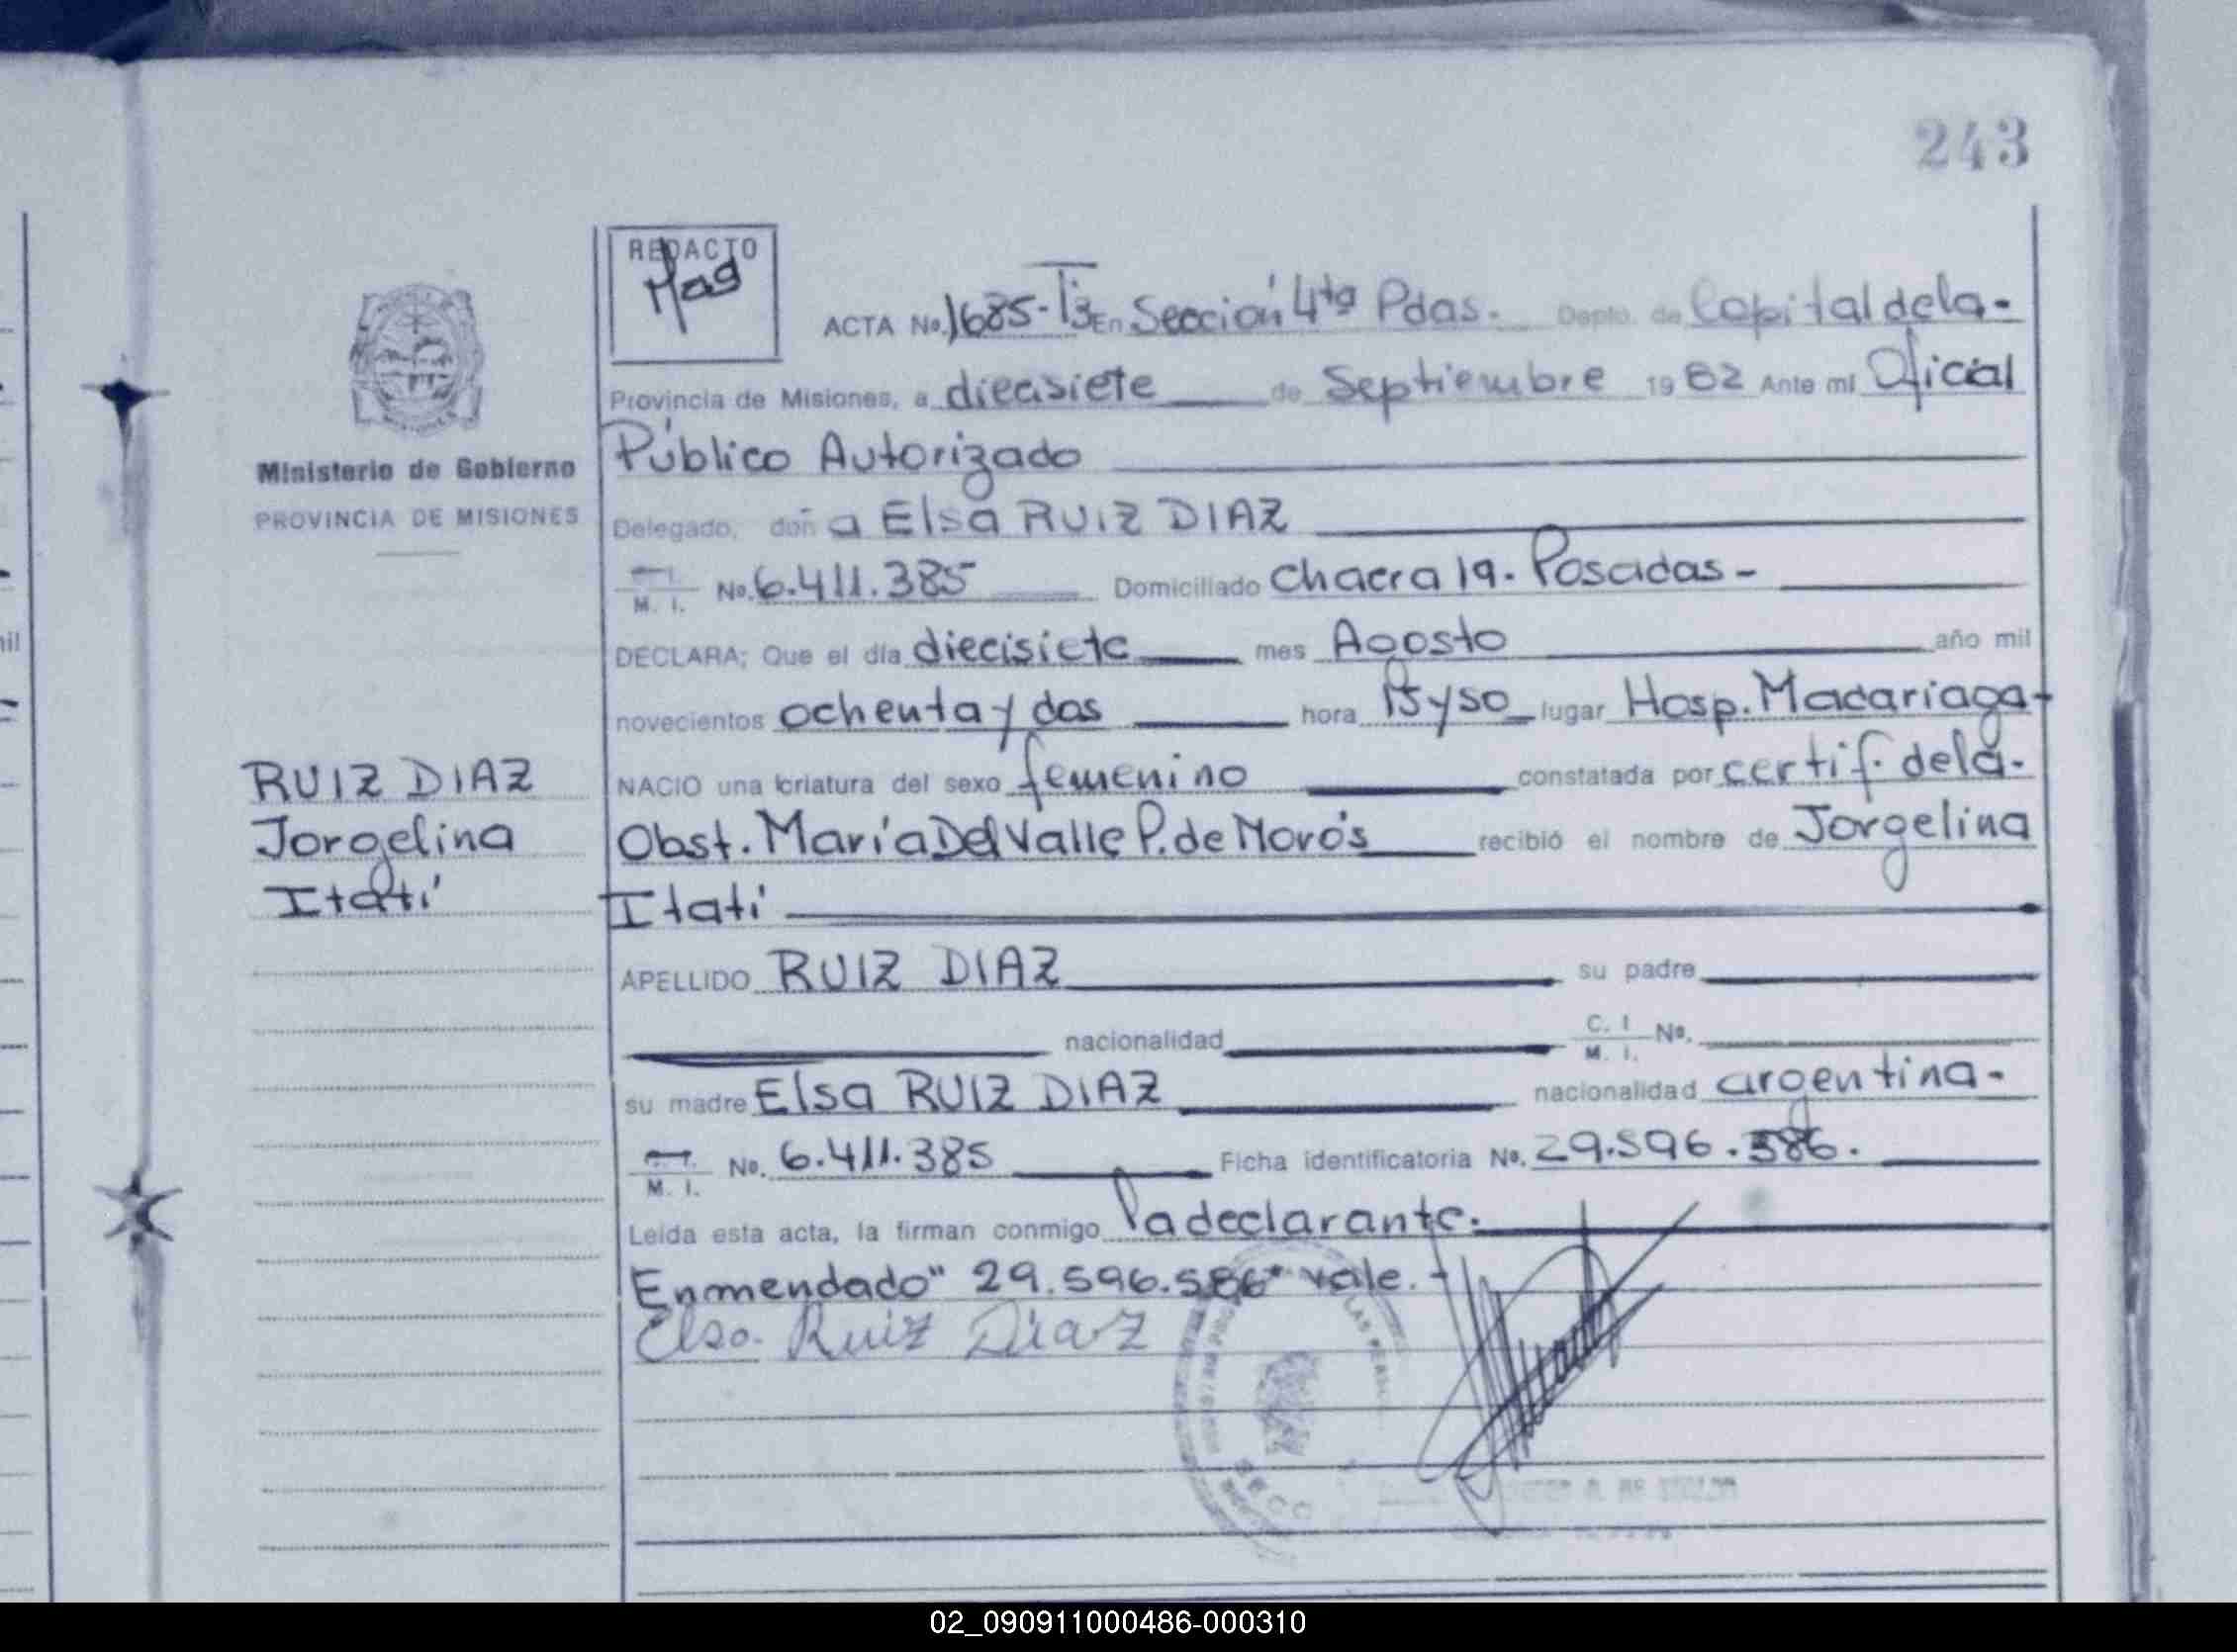 243
REDACTO
Mag
ACTA No. 1685-T3 En Sección 4ta Pdas. Depto. de Capital de la-
Provincia de Misiones, a diecisiete de Septiembre 1982 Ante mí Oficial
Público Autorizado
Ministerio de Gobierno
PROVINCIA DE MISIONES
Delegado, doña Elsa RUIZ DIAZ
M. I. No. 6.411.385 Domiciliado Chacra 19. Posadas-
DECLARA; Que el día diecisiete mes Agosto año mil
novecientos ochenta y dos hora 15 y 50 lugar Hosp. Madariaga-
NACIO una criatura del sexo femenino constatada por certif. de la-
Obst. María Del Valle P. de recibió el nombre de Jorgelina
Itatí
RUIZ DIAZ
Jorgelina
Itatí
APELLIDO RUIZ DIAZ su padre
nacionalidad C. I. M. I. No.
su madre Elsa RUIZ DIAZ nacionalidad argentina-
M. I. No. 6.411.385 Ficha identificatoria No. 29.596.586.
Leída esta acta, la firman conmigo la declarante.
Enmendado" 29.596.586" vale.-
Elsa Ruiz Diaz
SECC
02_090911000486-000310